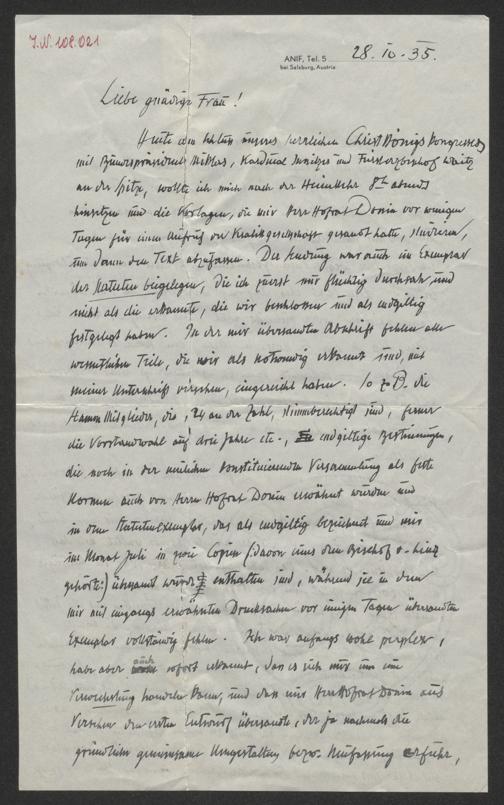 J.N. 108.021
ANIF, Tel. 5
bei Salzburg, Austria
28. IO. 35.
Liebe gnädige Frau !
Heute am Schluß unseres herrlichen Christ Königs Kongresses
mit Bundespräsident Miklas, Kardinal Innitzer und Fürsterzbischof Waitz
an der Spitze, wollte ich mich nach der Heimkehr 8h abends
hinsetzen und die Vorlagen, die mir Herr Hofrat Donin vor wenigen
Tagen für einen Aufruf der Kralikgesellschaft gesandt hatte, studieren,
um dann den Text abzufassen. Der Sendung war auch ein Exemplar
der Statuten beigelegen, die ich zuerst nur flüchtig durchsah und
nicht als die erkannte, die wir beschlossen und als endgiltig
festgelegt haben. In der mir übersandten Abschrift fehlen alle
wesentlichen Teile, die wir als notwendig erkannt und, mit
meiner Unterschrift versehen, eingereicht haben. So z. B. die
Stamm Mitglieder, die, 24 an der Zahl, stimmberechtigt sind, ferner
die Vorstandwahl auf drei Jahre etc., endgiltige Bestimmungen,
die noch in der neulichen konstituierenden Versammlung als feste
Normen auch von Herrn Hofrat Donin erwähnt wurden und
in dem Statutenexemplar, das als endgiltig bezeichnet und mir
im Monat Juli in zwei Copien (davon eines dem Bischof v. Linz
gehörte!) übersandt wurde, enthalten sind, während sie in dem
mir mit eingangs erwähnten Drucksachen vor einigen Tagen übersandten
Exemplar vollständig fehlen. Ich war anfangs wohl perplex,
habe aber auch sofort erkannt, daß es sich nur um eine
Verwechslung handeln kann, und daß mir Herr Hofrat Donin aus
Versehen den ersten Entwurf übersandte, der ja nachmals die
gründliche gemeinsame Umgestaltung bezw. Neufassung erfuhr,